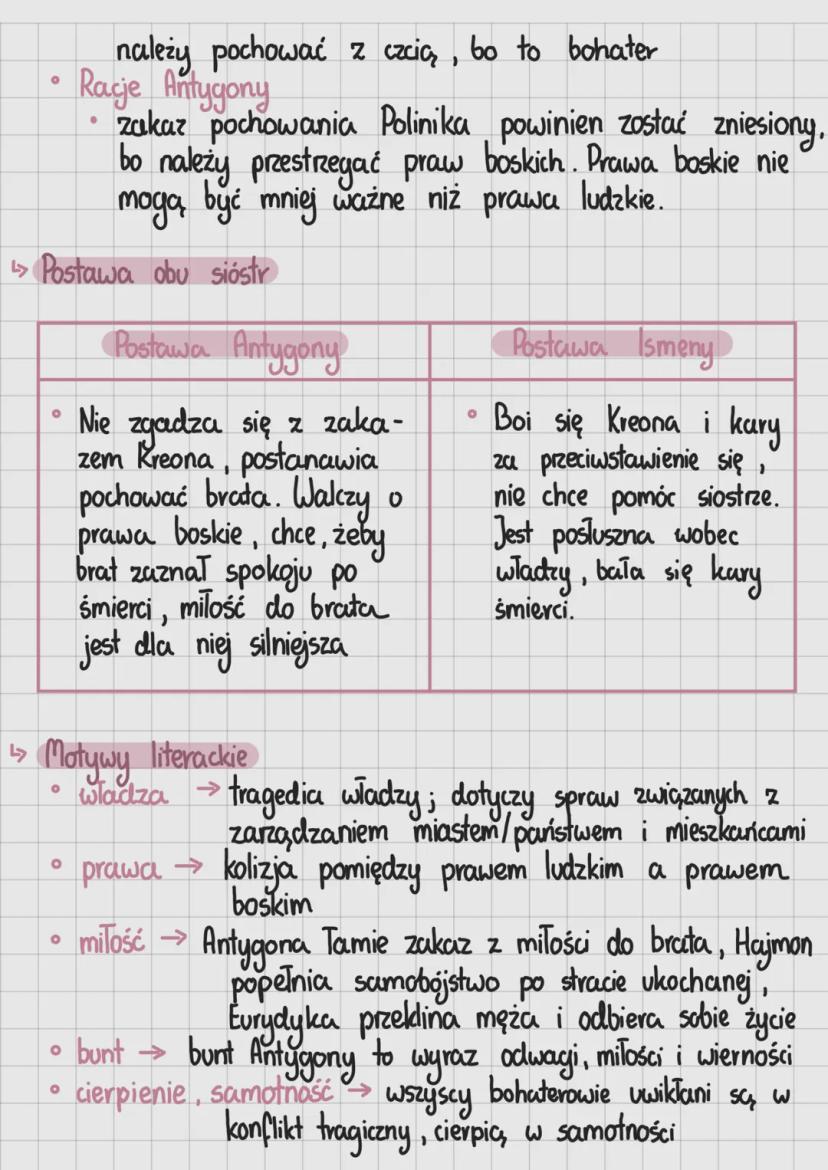 należy pochować z czcią, bo to bohater
Racje Antygony
zakaz pochowania Polinika powinien zostać zniesiony,
bo należy przestrzegać praw boskich. Prawa boskie nie
mogą być mniej ważne niż prawa ludzkie.
↳ Postawa obu sióstr
Postawa Antygony
Nie zgadza się z zaka-
zem Kreona, postanawia
pochować brata. Walczy o
prawa boskie, chce, żeby
brat zaznał spokoju po
śmierci, miłość do brata
jest dla niej silniejsza
Postawa Ismeny
Boi się Kreona i kary
za przeciwstawienie się,
nie chce pomóc siostrze.
Jest posłuszna wobec
władzy, bała się kary
śmierci.
↳ Motywy literackie
władza → tragedia władzy; dotyczy spraw związanych z
zarządzaniem miastem/państwem i mieszkańcami
prawa → kolizja pomiędzy prawem ludzkim a prawem
boskim
miłość → Antygona łamie zakaz z miłości do brata, Hajmon
popełnia samobójstwo po stracie ukochanej,
Eurydyka przeklina męża i odbiera sobie życie
bunt → bunt Antygony to wyraz odwagi, miłości i wierności
cierpienie, samotność → wszyscy bohaterowie uwikłani są w
konflikt tragiczny, cierpią w samotności